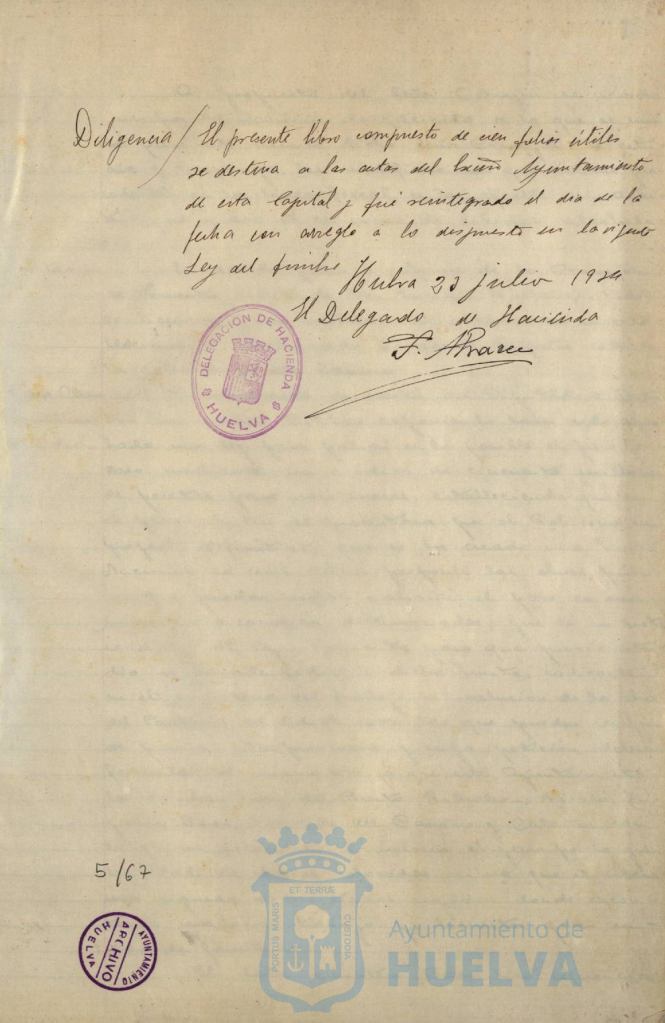 Diligencia / El presente libro compuesto de cien folios útiles
se destina a las actas del Excmo Ayuntamiento
de esta Capital y fué reintegrado el dia de la
fecha con arreglo a lo dispuesto en la vigente
Ley del timbre
Huelva 23 julio 1924
El Delegado de Hacienda
F. Alvarez
DELEGACION DE HACIENDA
HUELVA
5/67
AYUNTAMIENTO
ARCHIVO
HUELVA
PORTUS MARIS
ET TERRÆ
CUSTODIA
Ayuntamiento de
HUELVA